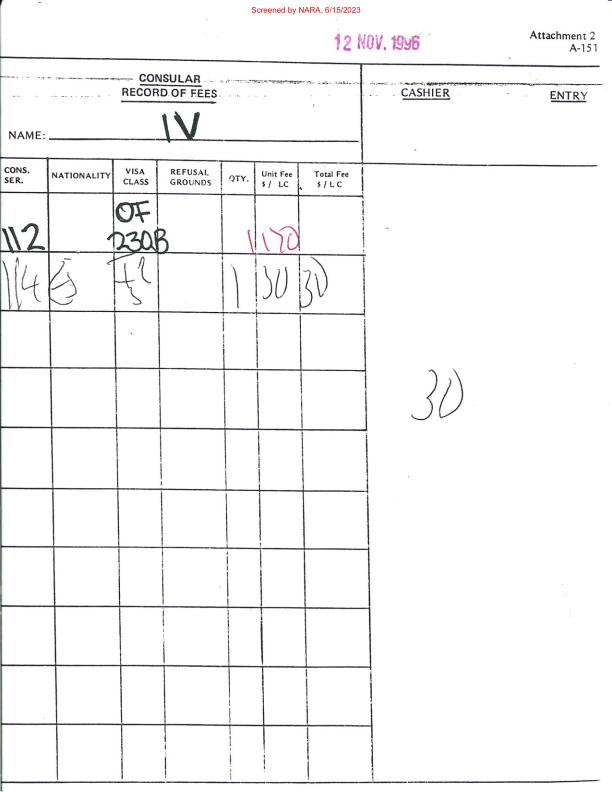 Screened by NARA, 6/15/2023
12 NOV. 1996
Attachment 2
A-151
CONSULAR
RECORD OF FEES
CASHIER ENTRY
NAME: IV
CONS. SER. NATIONALITY VISA CLASS REFUSAL GROUNDS QTY. Unit Fee $ / LC Total Fee $ / LC
OF
112 230B 1 170
114 1 30 30
30